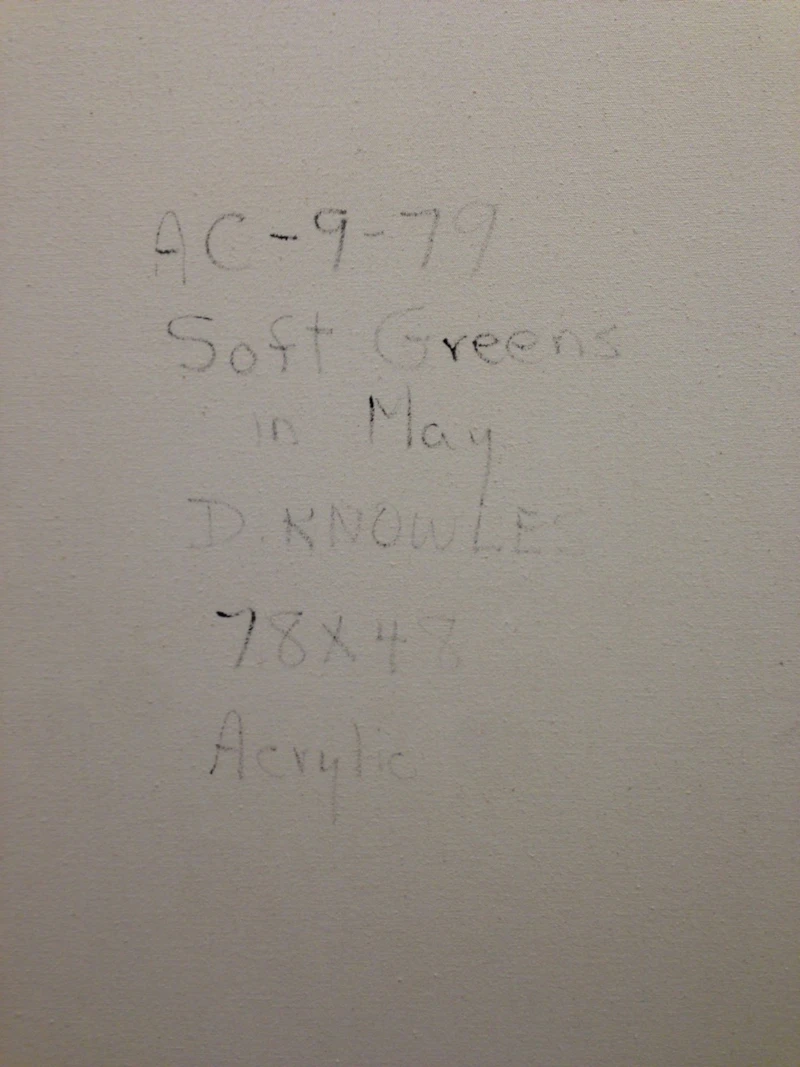 AC-9-79
Soft Greens
in May
D. KNOWLES
78X48
Acrylic